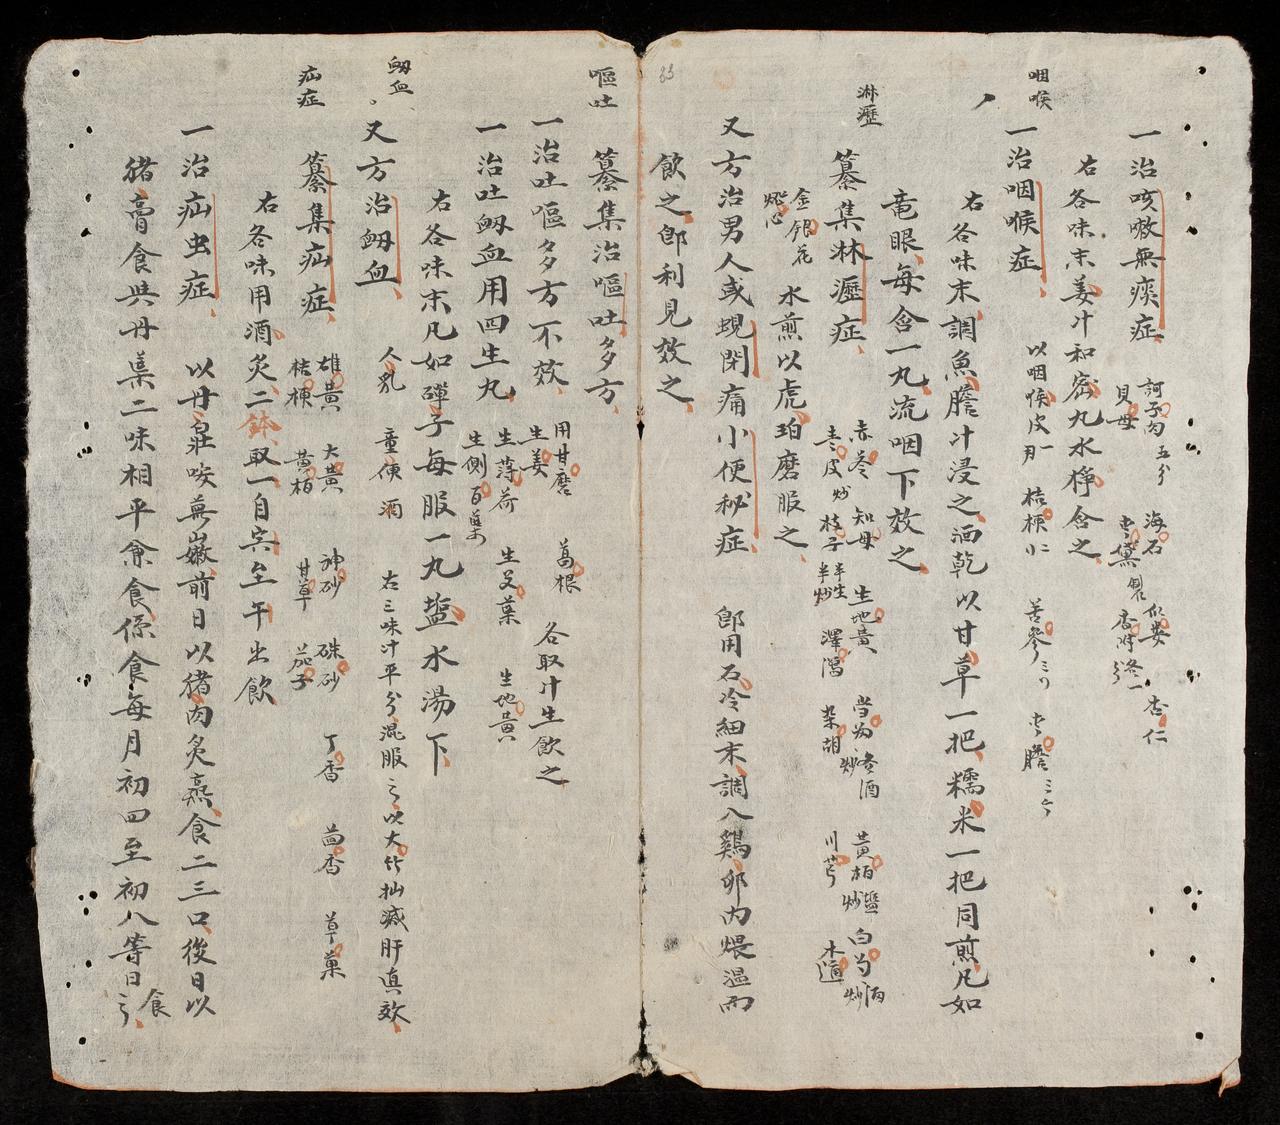 咽喉
淋瀝
33
嘔吐
衂血
疝症
一治咳嗽無痰症 訶子肉五分 海石 瓜蔞 杏仁
貝母 青黛 香附
右各味末姜汁和密丸水停含之
一治咽喉症 以咽喉皮一 桔梗 苦參 胆
右各味末調魚膽汁浸之洒乾以甘草一把糯米一把同煎凡如
竜眼每含一丸流咽下效之
纂集淋瀝症 赤苓 知母 生地黃 当归 酒 黃柏 塩炒 白芍 酒炒
青皮炒 枝子 半生半炒 澤瀉 柴胡炒 川芎 木通
金銀花 水煎以虎珀磨服之
灯心
又方治男人或蜆閉痛小便秘症 即用石冷細末調入鷄卵內煨温而
飲之即利見效之
纂集治嘔吐多方
一治吐嘔多方不效 用甘磨 葛根 各取汁生飲之
生姜
一治吐衂血用四生丸 生薄荷 生艾葉 生地黃
生側百葉
右各味末凡如彈子每服一丸塩水湯下
又方治衂血 人乳 童便 酒 右三味汁平分混服之以大竹抽滅肝真效
纂集疝症 雄黃 大黃 神砂 硃砂 丁香 茴香 草菓
桔梗 黃柏 甘草 茄子
右各味用酒炙二鉢取一自寅至午出飲
一治疝虫症 以廿 前日以猪肉炙燕食二三口後日以
猪膏食與丹葉二味相平煮食係食每月初四至初八等日食之